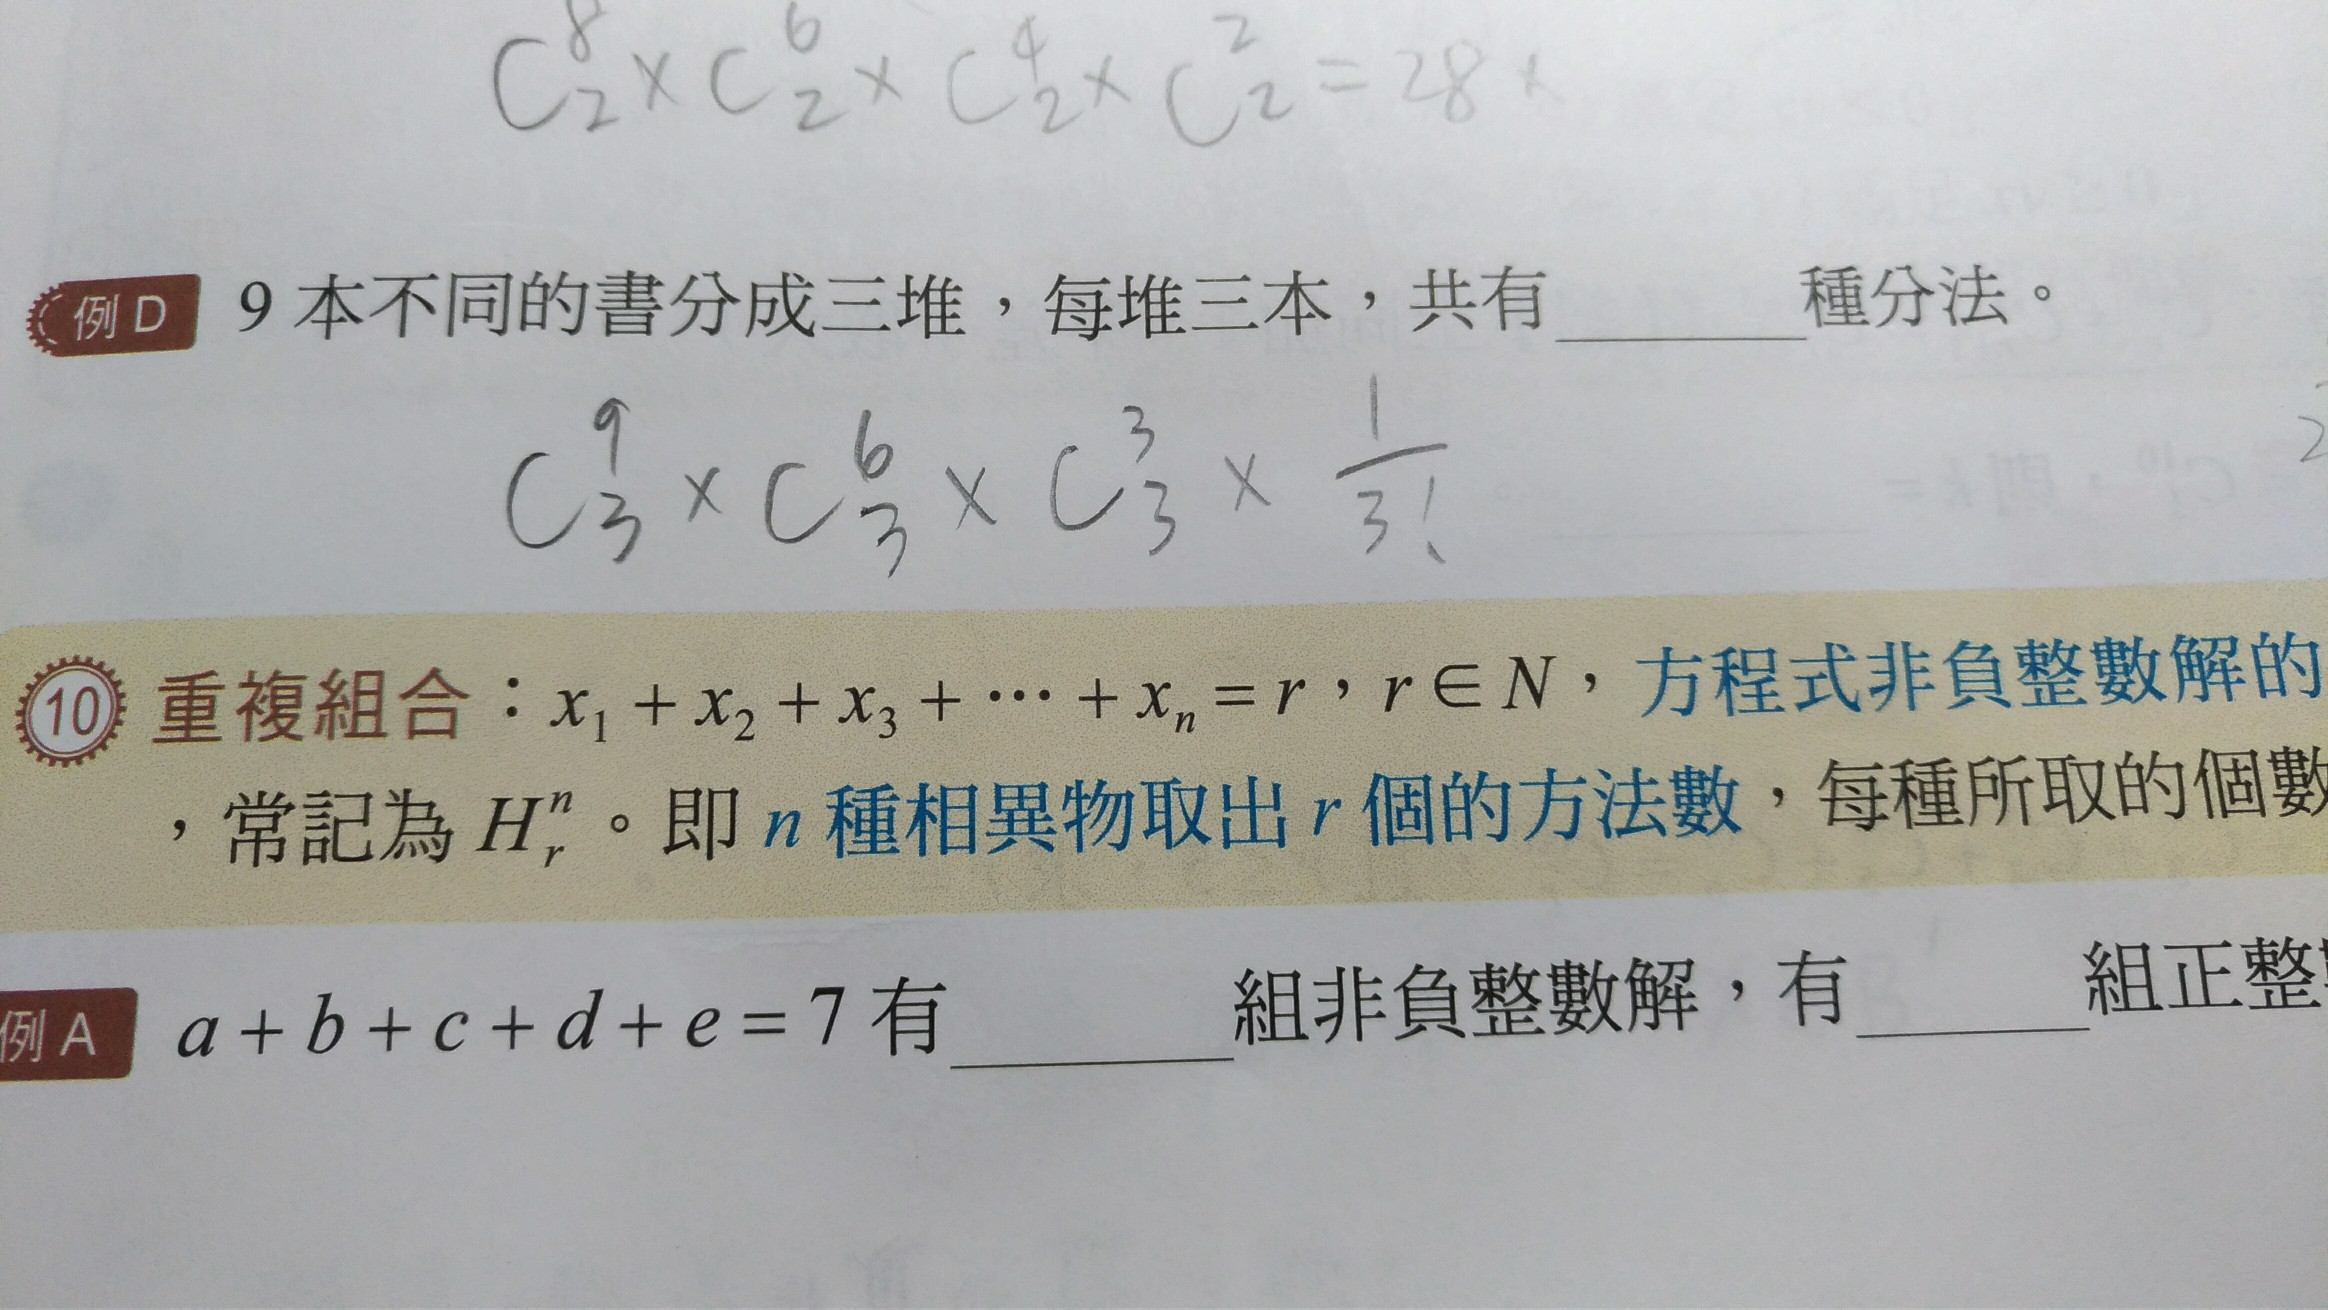 C⁸₂ × C⁶₂ × C⁴₂ × C²₂ = 28 ×
例 D 9 本不同的書分成三堆，每堆三本，共有______種分法。
C⁹₃ × C⁶₃ × C³₃ × 1/3!
10 重複組合：x₁ + x₂ + x₃ + ⋯ + xₙ = r，r ∈ N，方程式非負整數解的
，常記為 Hⁿᵣ。即 n 種相異物取出 r 個的方法數，每種所取的個數
例 A a + b + c + d + e = 7 有______組非負整數解，有______組正整